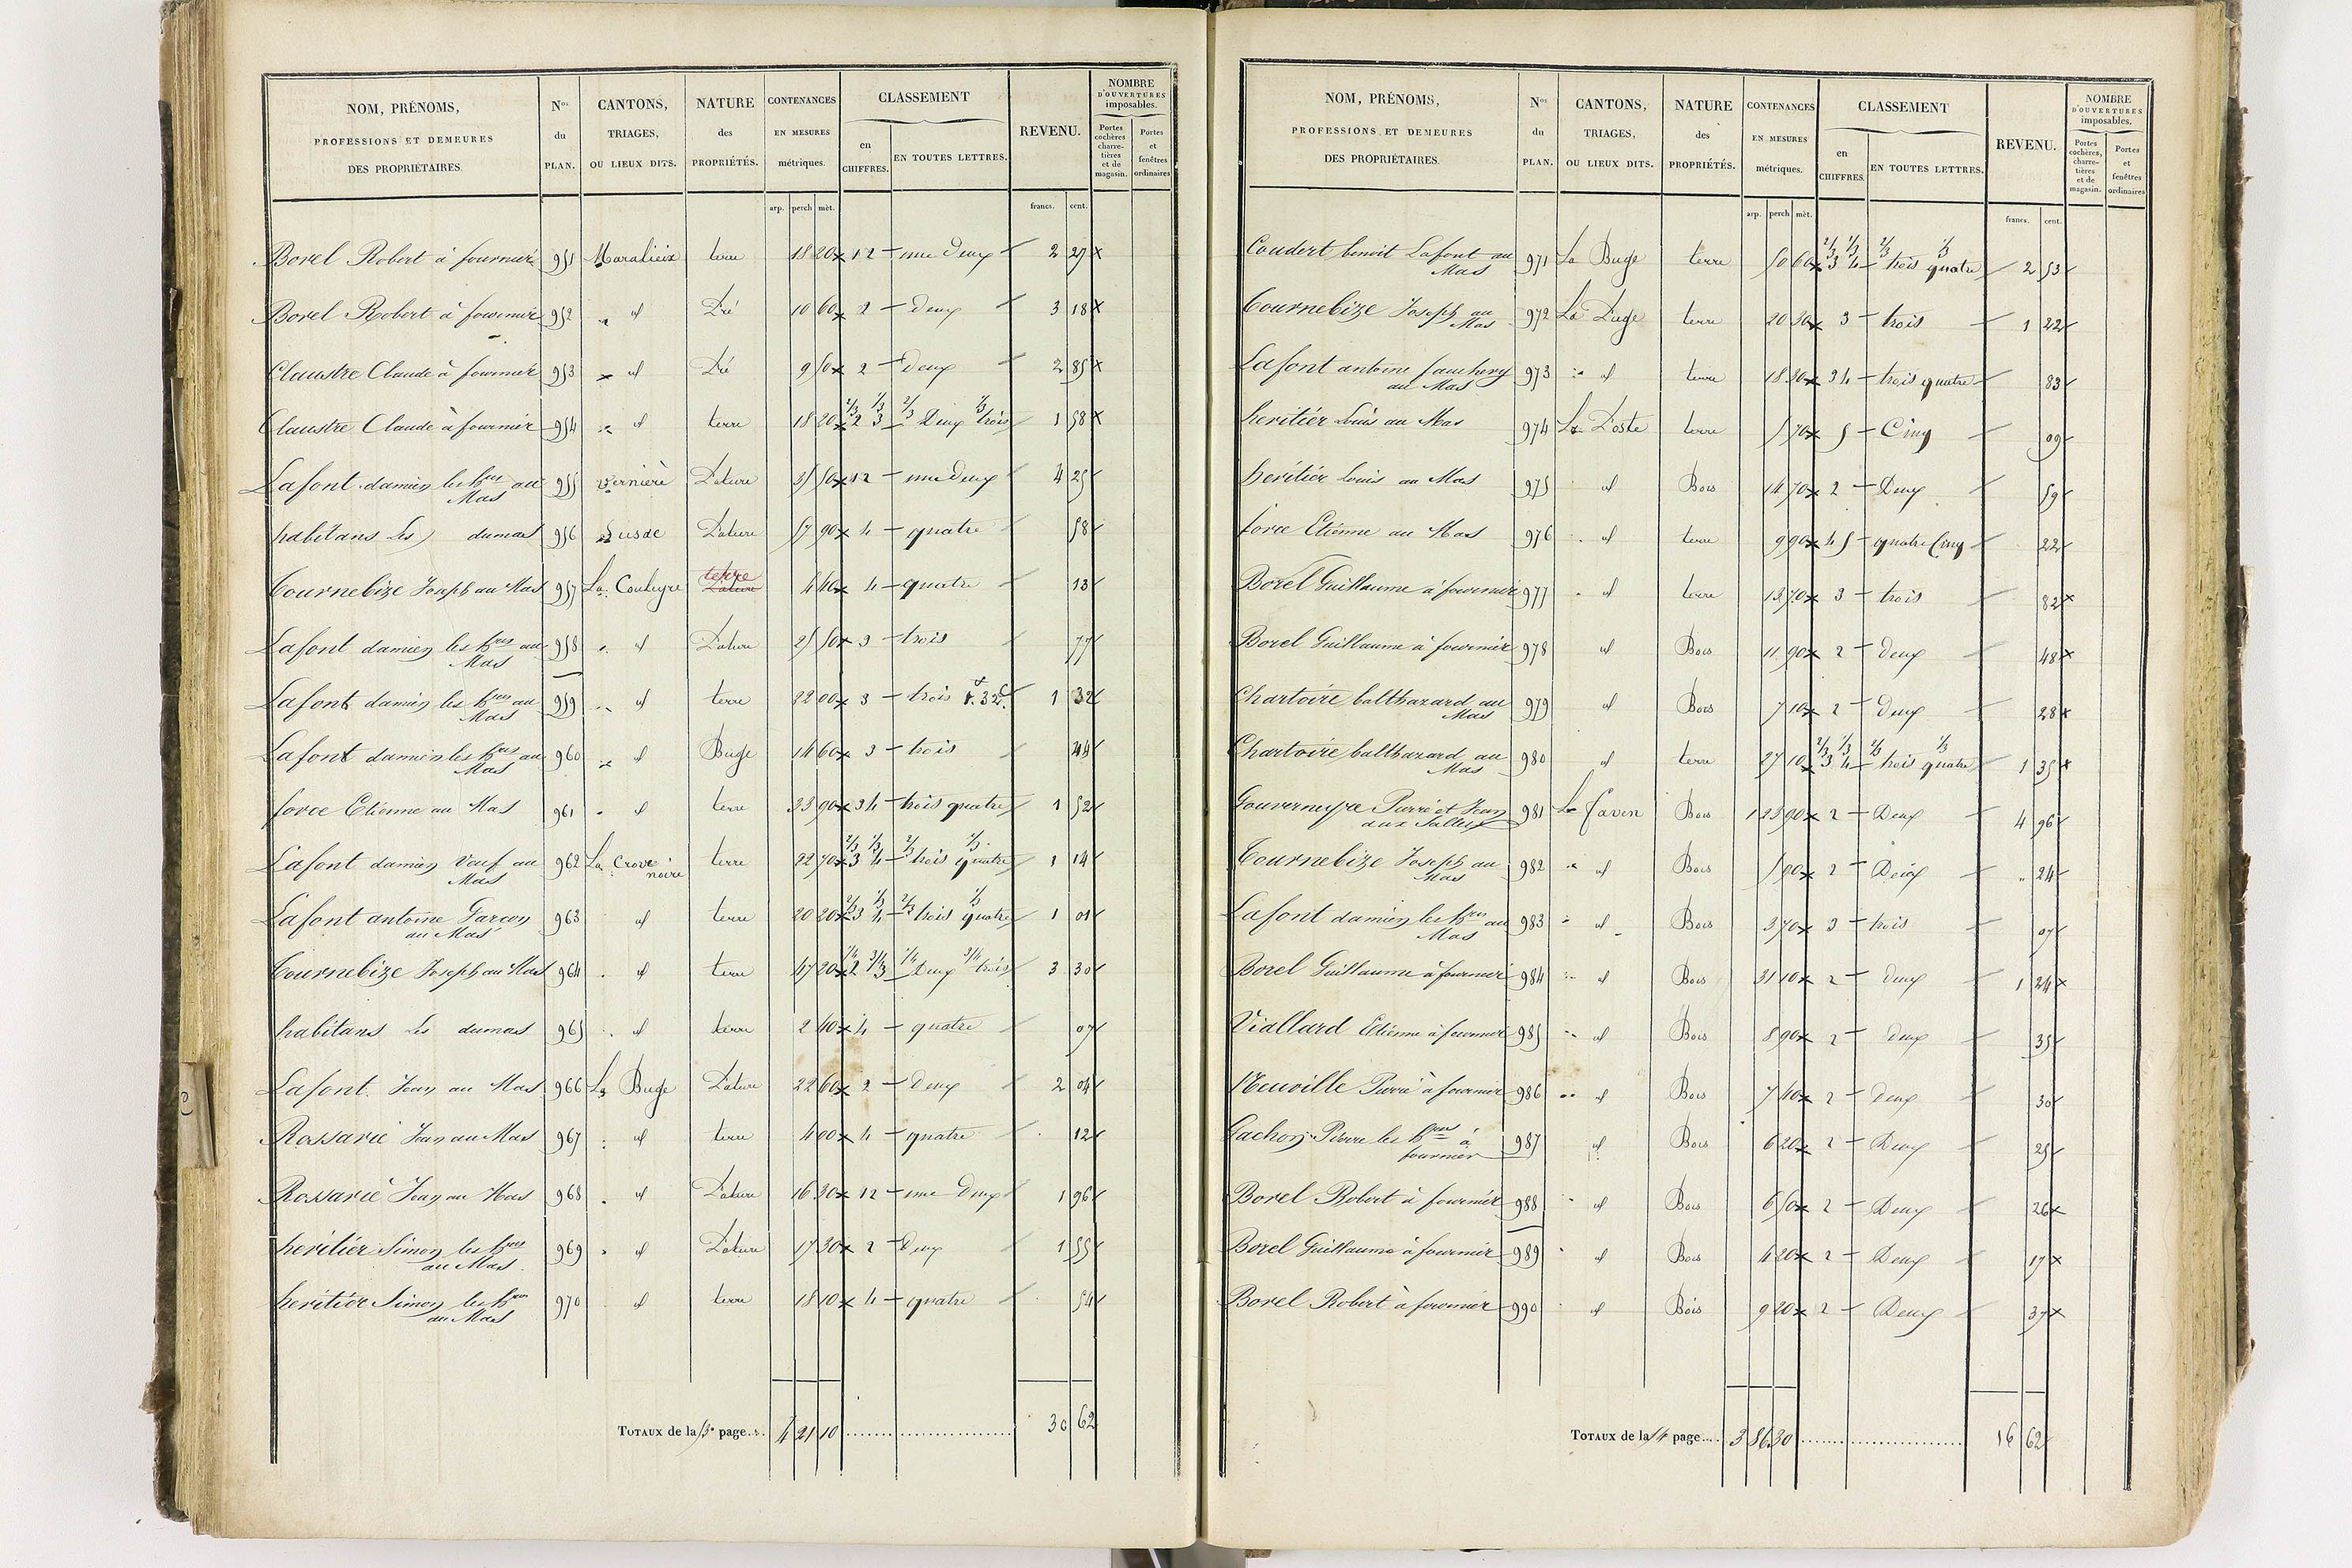 NOM, PRÉNOMS, PROFESSIONS ET DEMEURES DES PROPRIÉTAIRES. Nos du PLAN. CANTONS, TRIAGES, OU LIEUX DITS. NATURE des PROPRIÉTÉS. CONTENANCES EN MESURES métriques. CLASSEMENT en CHIFFRES. EN TOUTES LETTRES. REVENU. NOMBRE D'OUVERTURES imposables. Portes cochères, charretières et de magasin. Portes et fenêtres ordinaires
arp. perch mèt. francs. cent.
Borel Robert à fournier 951 Maralieix terre 18 20 12 une Deux 2 27
Borel Robert à fournier 952 id Pré 10 60 2 Deux 3 18
Claustre Claude à fournier 953 id Pré 9 50 2 Deux 2 85
Claustre Claude à fournier 954 id terre 18 20 2/3 2 1/3 3 2/3 Deux 1/3 trois 1 58
Lafont damien les hers au Mas 955 vernière Pature 35 50 12 une Deux 4 25
habitans Les dumas 956 Pature 57 90 4 quatre 58
Cournebize Joseph au Mas 957 La Couleyre terre Pature 4 40 4 quatre 13
Lafont damien les hers au Mas 958 id Pature 25 50 3 trois 77
Lafont damien les hers au Mas 959 id terre 22 00 3 trois 1f. 32c. 1 32
Lafont damien les hers au Mas 960 id Buge 14 60 3 trois 44
force Etienne au Mas 961 id terre 33 90 34 trois quatre 1 52
Lafont damien veuf au Mas 962 La Croix noire terre 22 70 2/3 3 1/3 4 2/3 trois 1/3 quatre 1 14
Lafont antoine Garçon au Mas 963 id terre 20 20 2/3 3 1/3 4 2/3 trois 1/3 quatre 1 01
Cournebize Joseph au Mas 964 id terre 47 20 1/4 2 3/4 3 1/4 Deux 3/4 trois 3 30
habitans Les dumas 965 id terre 2 40 4 quatre 07
Lafont Jean au Mas 966 La Buge Pature 22 60 2 Deux 2 04
Rossarie Jean au Mas 967 id terre 4 00 4 quatre 12
Rossarie Jean au Mas 968 id Pature 16 30 12 une Deux 1 96
heritiér Simon les hers au Mas 969 id Pature 17 30 2 Deux 1 55
heritiér Simon les hers au Mas 970 id terre 18 10 4 quatre 54
TOTAUX de la 13e page... 4 21 10 30 62
NOM, PRÉNOMS, PROFESSIONS ET DEMEURES DES PROPRIÉTAIRES. Nos du PLAN. CANTONS, TRIAGES, OU LIEUX DITS. NATURE des PROPRIÉTÉS. CONTENANCES EN MESURES métriques. CLASSEMENT en CHIFFRES. EN TOUTES LETTRES. REVENU. NOMBRE D'OUVERTURES imposables. Portes cochères, charretières et de magasin. Portes et fenêtres ordinaires
arp. perch mèt. francs. cent.
Coudert benoit Lafont au Mas 971 La Buge terre 50 60 2/3 3 1/3 4 2/3 trois 1/3 quatre 2 53
Cournebize Joseph au Mas 972 La Buge terre 20 30 3 trois 1 22
Lafont antoine fauchery au Mas 973 id terre 18 30 34 trois quatre 83
heritiér Louis au Mas 974 La Poste terre 5 70 5 Cinq 09
heritiér Louis au Mas 975 id Bois 14 70 2 Deux 59
force Etienne au Mas 976 id terre 9 90 45 quatre Cinq 22
Borel Guillaume à fournier 977 id terre 13 70 3 trois 82
Borel Guillaume à fournier 978 id Bois 11 90 2 Deux 48
Chartoire balthazard au Mas 979 id Bois 7 10 2 Deux 28
Chartoire balthazard au Mas 980 id terre 27 10 2/3 3 1/3 4 2/3 trois 1/3 quatre 1 35
Gouverneyre Pierre et Jean aux Salles 981 Bois 1 23 90 2 Deux 4 96
Cournebize Joseph au Mas 982 id Bois 5 90 2 Deux 24
Lafont damien les hers au Mas 983 id Bois 3 70 3 trois 07
Borel Guillaume à fournier 984 id Bois 31 10 2 Deux 1 24
Viallard Etienne à fournier 985 id Bois 8 90 2 Deux 35
Neuville Pierre à fournier 986 id Bois 7 40 2 Deux 30
Gachon Pierre les hers à fournier 987 id Bois 6 20 2 Deux 25
Borel Robert à fournier 988 id Bois 6 50 2 Deux 26
Borel Guillaume à fournier 989 id Bois 4 20 2 Deux 17
Borel Robert à fournier 990 id Bois 9 20 2 Deux 37
TOTAUX de la 14 page... 3 86 30 16 62